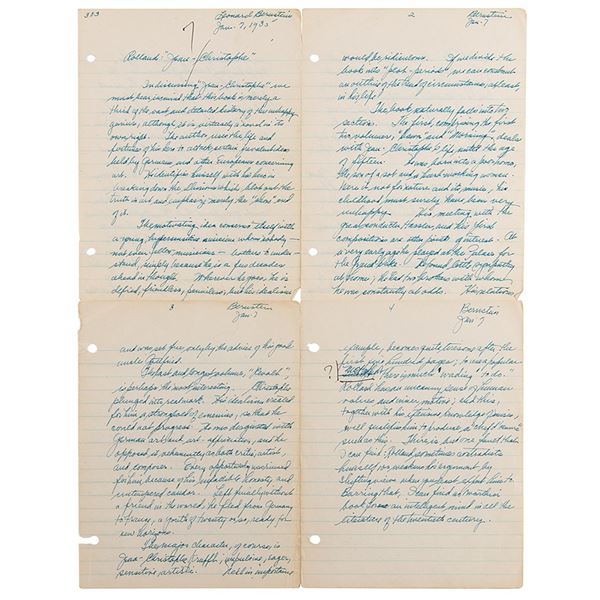 303
Leonard Bernstein
Jan. 7, 1935
Rolland: "Jean-Christophe"
In discussing "Jean-Christophe" we
must bear in mind that this book is merely a
third of the vast, and detailed history of the unhappy
genius; although it is certainly a novel in its
own right. The author uses the life and
fortunes of his hero to attack certain
held by Germans and other Europeans concerning
art. He identifies himself with his hero in
breaking down the illusions which blot out the
truth in art and emphasizing merely the "idea"
of it.
The motivating idea concerns itself with
a young, hypersensitive musician whom nobody—
not even fellow musicians — bothers to under-
stand, simply because he is a few decades
ahead in thought. Wherever he goes, he is
defied, friendless, penniless, but his idealism
2
Bernstein
Jan. 7
would be ridiculous. If we divide the
book into "plot-periods" we can construct
an outline of the trend of circumstances, at least,
in his life.
The book naturally falls into two
sections. The first, comprising the first
two volumes, "Dawn" and "Morning", deals
with Jean-Christophe's life until the age
of fifteen. Born into a poor house,
the son of a sot and a hard working woman.
Were it not for nature and its music, his
childhood must surely have been very
unhappy. His meeting with the
great conductor, Hassler, and his first
compositions are other points of interest. At
a very early age he played at the Palace for
the Grand Duke. He found little sympathy
at home; he had two brothers with whom
he was constantly at odds. His relations,
3
Bernstein
Jan. 7
and was set free only by the advice of his good
uncle Gottfried.
The last and longest volume, "Revolt",
is perhaps the most interesting. Christophe
plunged into real work. His idealism created
for him a stronghold of enemies, so that he
could not progress. He was disgusted with
German art and art-appreciation, and he
opposed it vehemently, as both critic, artist,
and composer. Every opportunity was ruined
for him because of his implacable honesty, and
untempered candor. Left finally without
a friend in the world, he fled from Germany
to France, a youth of twenty or so, ready for
new horizons.
The major character, of course, is
Jean-Christophe Krafft; impulsive, eager,
sensitive, artistic.
4
Bernstein
Jan. 7
example, becomes quite tiresome after the
first two hundred pages; to use a popular
? there is much "wading" to do."
Rolland has an uncanny sense of human
natures and inner motives; but this,
together with his extensive knowledge of music,
well qualifies him to produce a "chef d'œuvre"
such as this. There is but one fault that
I can find; Rolland sometimes contradicts
himself or weakens his argument by
shifting views when
Barring that, I can find as masterful a
book for an intelligent mind in all the
literature of the twentieth century.